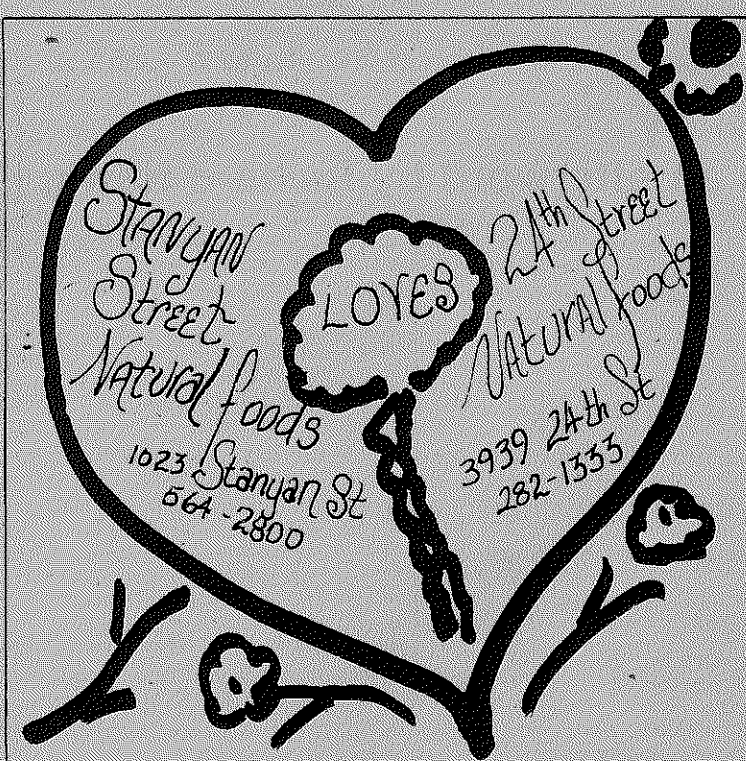 STANYAN
STREET
NATURAL foods
1023 Stanyan St
564-2800
LOVES
24th STREET
NATURAL foods
3939 24th St
282-1333